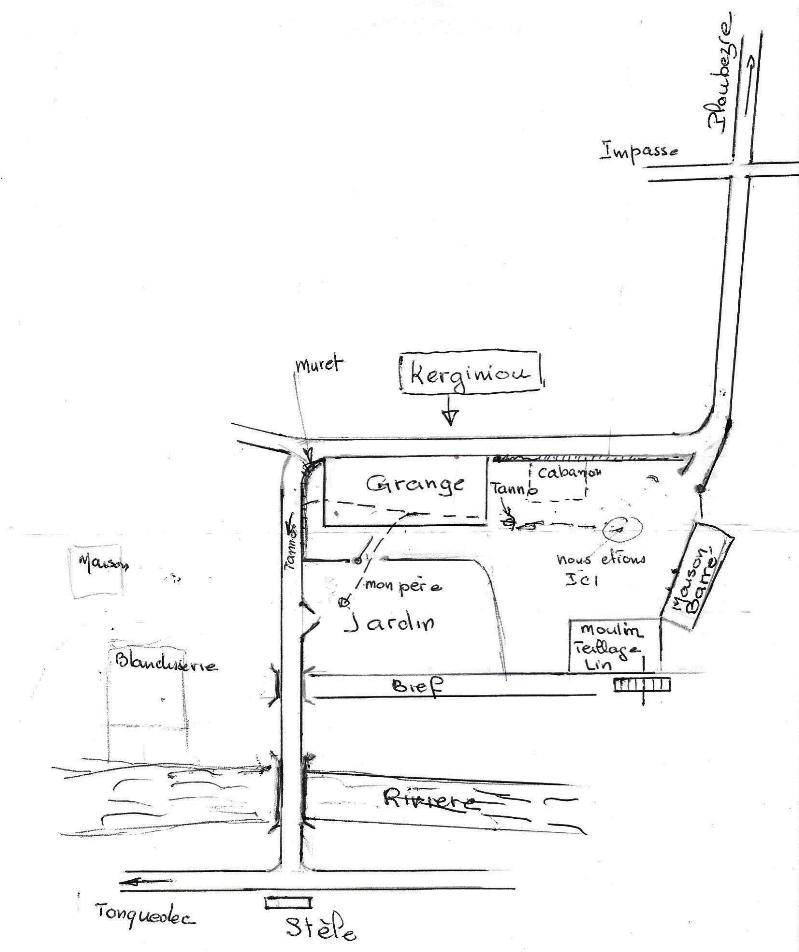 Ploubezre
Impasse
Muret
Kerginiou
Grange
Cabanon
Tanno
Tanno
nous etions
ICI
Maison
Barré
Maison
mon père
Jardin
Moulin
Teillage
Lin
Blanchisserie
Bief
Rivière
Tonquedec
Stèle